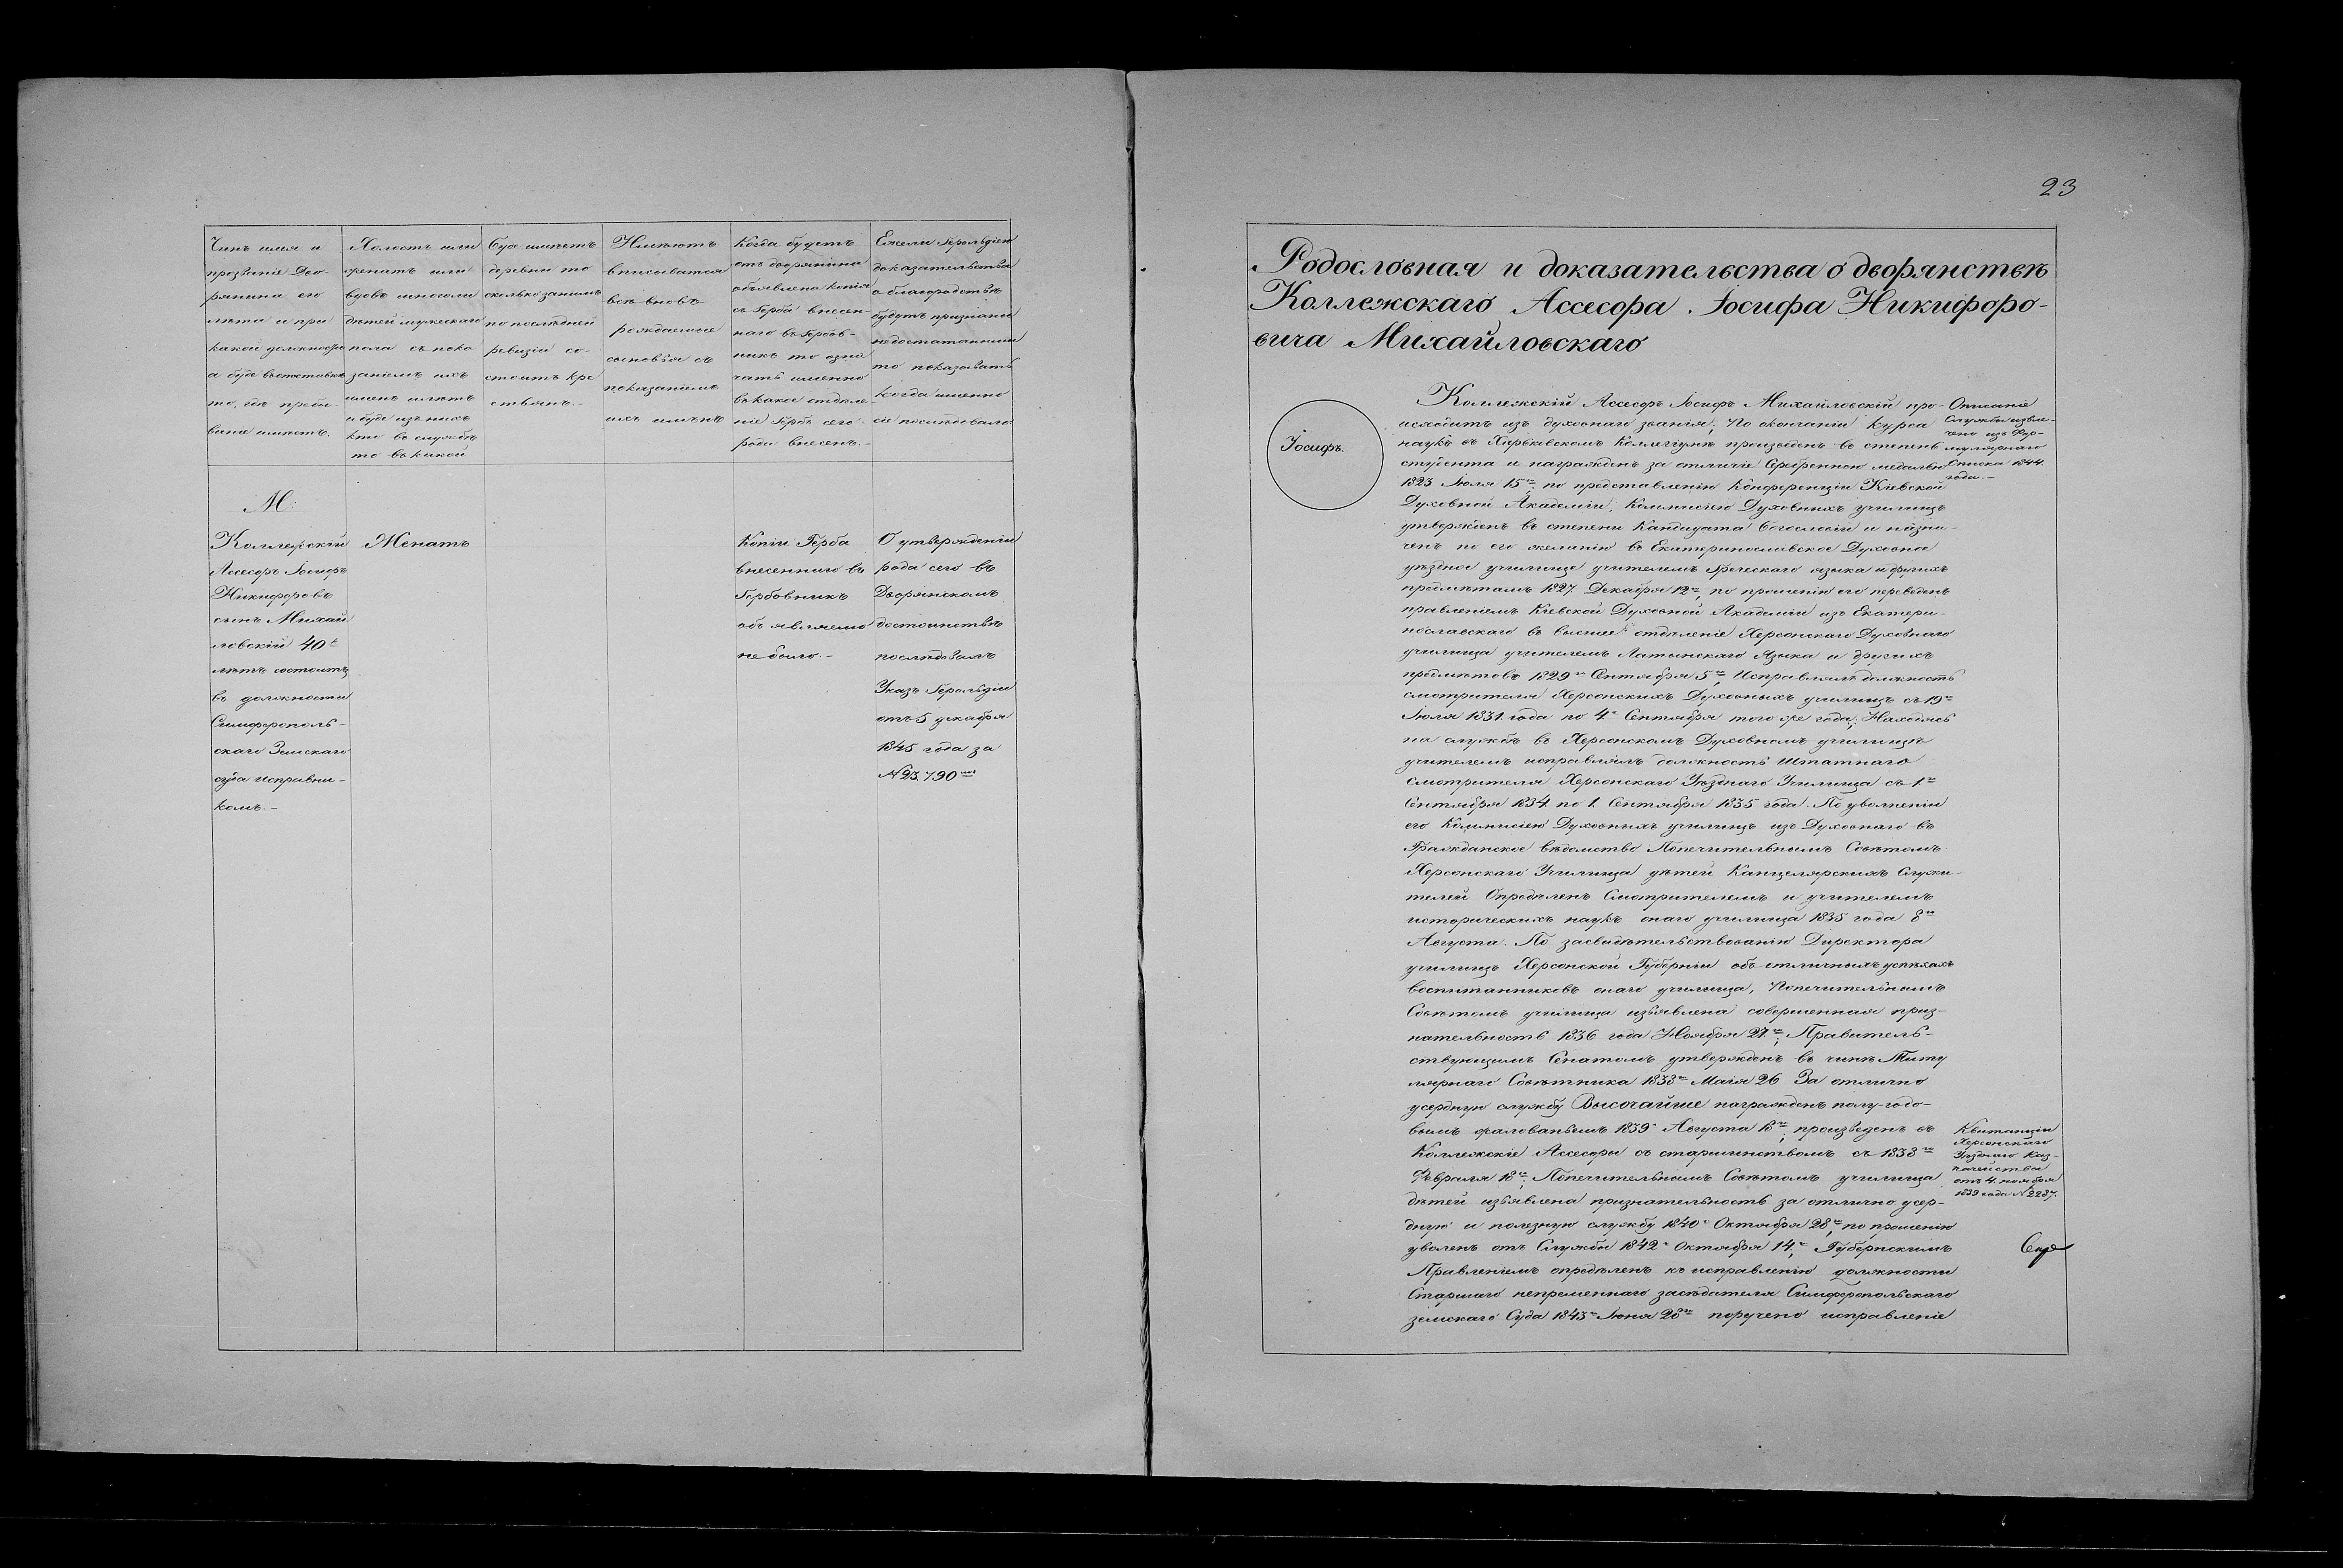 Чинъ имя и
прозваніе Дво-
рянина его
лѣта и при
какой должности
а буде въ отставкѣ
то, гдѣ пребы-
ваніе имѣетъ.
Холостъ или
женатъ или
вдовъ и много ли
дѣтей мужескаго
пола съ пока
заніемъ ихъ
именъ и лѣтъ
и буде изъ нихъ
кто въ службѣ
то въ какой
Буде имѣетъ
деревни то
сколько заними
по послѣдней
ревизіи со-
стоитъ кре
стьянъ.-
Имѣютъ
вписыватся
всѣ вновь
рождаемые
сыновья съ
показаніемъ
ихъ имянъ
Когда будетъ
отъ дворянина
объявлена копія
съ Герба внесен-
наго въ Гербов-
никъ то озна
чать именно
въ какое отдѣле
ніе Гербъ сего
рода внесенъ.-
Ежели Герольдіею
доказательства
о благородствѣ
будутъ признаны
недостаточными
то показывать
когда именно
сіе послѣдовало.
М:
Коллежскій
Ассесоръ Іосифъ
Никифоровъ
сынъ Михай
ловскій 40
лѣтъ состоитъ
въ должности
Симферополь-
скаго Земскаго
суда исправни-
комъ.-
Женатъ
Копіи Герба
внесеннаго въ
Гербовникъ
объявляемо
не было.-
О утвержденіи
рода сего въ
Дворянскомъ
достоинствѣ
послѣдовалъ
Указъ Герольдіи
отъ 5 декабря
1845 года за
№ 23.790
23
Родословная и доказательства о дворянствѣ
Коллежскаго Ассесора Іосифа Никифоро-
вича Михайловскаго
Іосифъ.
Коллежскій Ассесоръ Іосифъ Михайловскій про-
исходитъ изъ духовнаго званія; По окончаніи курса
наукъ въ Харьковскомъ Коллегіумѣ произведенъ въ степень
студента и награжденъ за отличіе Серебренною медалью
1823 Іюля 15го; по представленію Конференціи Кіевской
Духовной Академіи, Коммисіею Духовныхъ училищъ
утвержденъ въ степени Кандидата богословіи и назна-
ченъ по его желанію въ Екатеринославское Духовное
уѣздное училище учителемъ Греческаго языка и другихъ
предмѣтамъ 1827 Декабря 12го, по прошенію его переведенъ
правленіемъ Кіевской Духовной Академіи изъ Екатери-
нославскаго въ высшее отдѣленіе Херсонскаго Духовнаго
училища учителемъ Латынскаго Языка и другихъ
предмѣтовъ 1829го Сентября 5го, Исправлялъ должность
смотрителя Херсонскихъ Духовныхъ училищъ съ 19го
Іюля 1831 года по 4е Сентября того же года; Находясь
на службѣ въ Херсонскомъ Духовномъ училищѣ
учителемъ исправлялъ должность Штатнаго
Смотрителя Херсонскаго Уѣзднаго Училища съ 1го
Сентября 1834 по 1. Сентября 1835 года. По уволненіи
его Коммисіею Духовныхъ училищъ изъ Духовнаго въ
Гражданское вѣдомство Попечительнымъ Совѣтомъ
Херсонскаго Училища дѣтей Канцелярскихъ Служи-
телей Опредѣленъ Смотрителемъ и учителемъ
историческихъ наукъ онаго училища 1835 года 8го
Августа. По засвидѣтельствованію Директора
училищъ Херсонской Губерніи объ отличныхъ успѣхахъ
воспитанниковъ онаго училища, Попечительнымъ
Совѣтомъ училища изъявлена совершенная приз-
нательность 1836 года Ноября 27го; Правитель-
ствующимъ Сенатомъ утвержденъ въ чинѣ Титу
лярнаго Совѣтника 1838го Маія 26 За отлично
усердную службу Высочайше награжденъ полу-годо-
вымъ жалованьемъ 1839 Августа 18го; произведенъ въ
Коллежскіе Ассесоры со старшинствомъ съ 1838го
Февраля 18го; Попечительнымъ Совѣтомъ училища
дѣтей изъявлена признательность за отлично усер-
дную и полезную службу 1840 Октября 28го, по прошенію
уволенъ отъ Службы 1842 Октября 14, Губернскимъ
Правленіемъ опредѣленъ къ исправленію должности
Старшаго непременнаго засѣдателя Симферопольскаго
земскаго Суда 1843го Іюня 28го поручено исправленіе
Описаніе
Службы извле-
чено изъ Фор-
мулярнаго
Списка 1844.
года.-
Квитанціи
Херсонскаго
Уѣзднаго Каз-
начейства
отъ 4. ноября
1839 года № 2287.